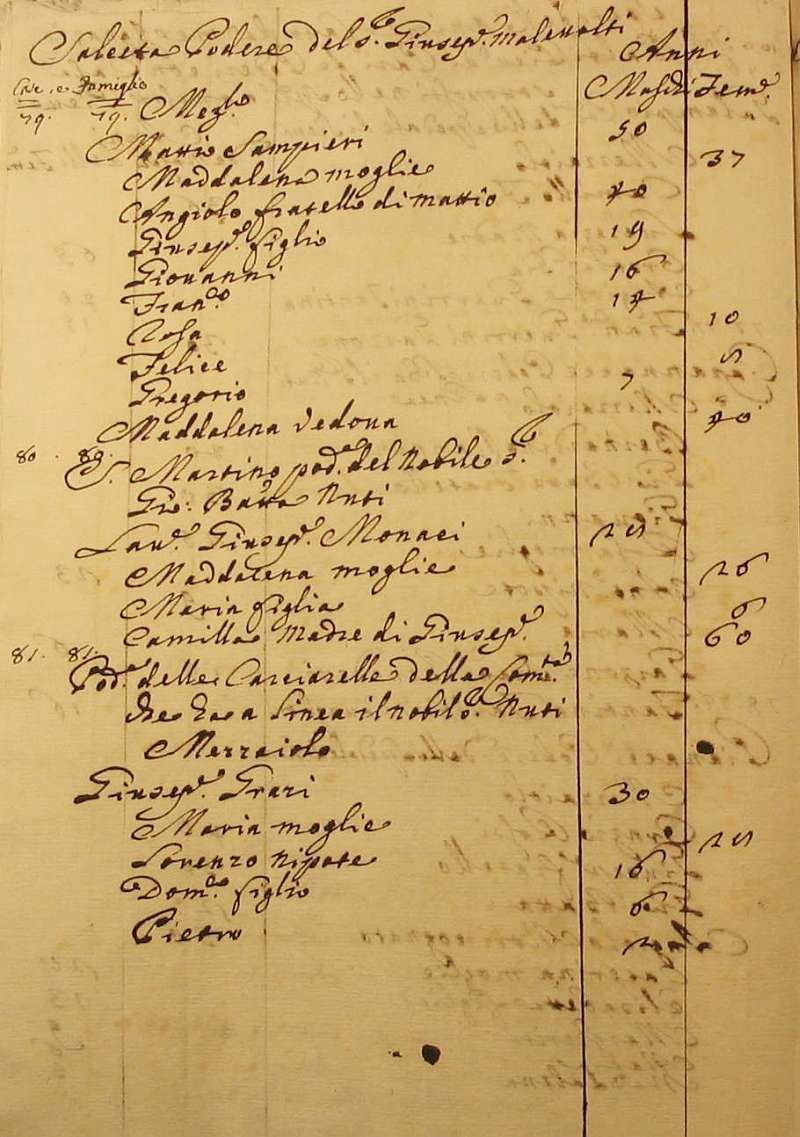 Salceta Podere del S.r Giusep.e Malevolti
Anni
Case e Famiglie Maschi Fem.e
79. 79. Mez.lo
Mattio Sampieri 50
Maddalena moglie 37
Angiolo fratello di mattio 40
Giusep.e figlio 19
Giovanni 16
Fran.co 14
Rosa 10
Felice 5
Gregorio 7
Maddalena Vedova 40
80. 80. S. Martino pod.e del Nobile S.r
Gio: Batta Nuti
Lav.e Giusep.e Monaci 25
Maddalena moglie 26
Maria figlia 6
Camilla Madre di Giusep.e 60
81. 81. Pod.e delle Casciarelle della Com.tà
che ha a Linea il nobil S.r Nuti
Mezzaiolo
Giusep.e Grazi 30
Maria moglie 25
Lorenzo Nipote 16
Dom.co figlio 6
Pietro 2